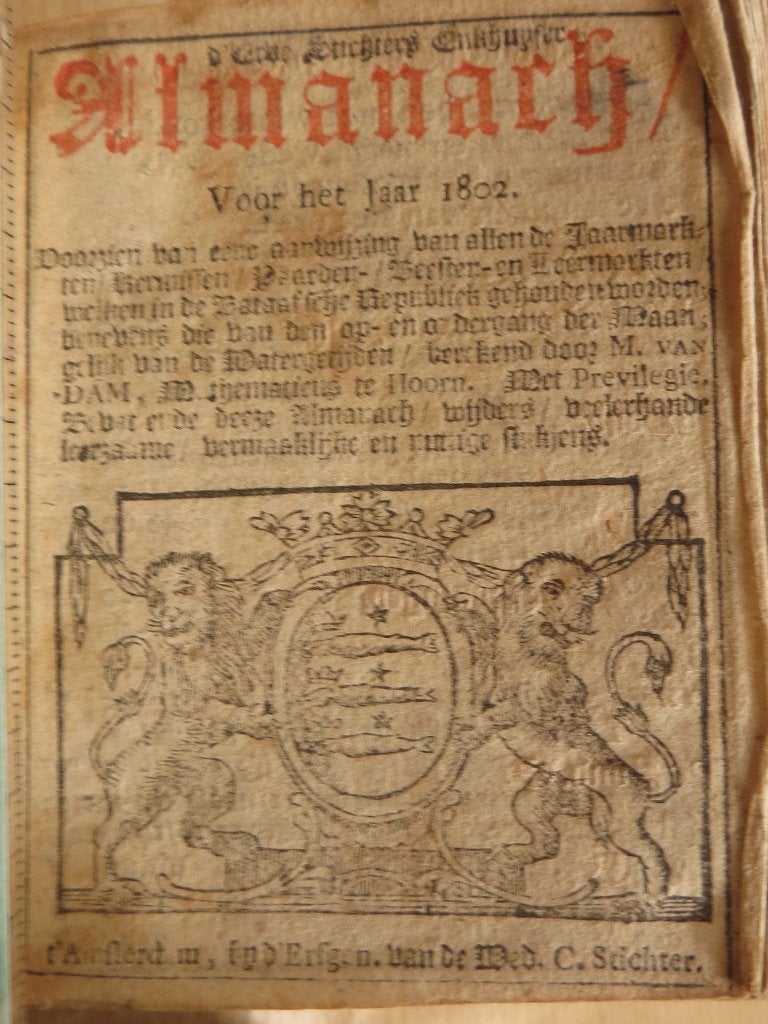 d'Erve Stichters Enkhuyser
Almanach/
Voor het Jaar 1802.
Voorzien van eene aanwijzing van allen de Jaarmark-
ten/ Kermissen/ Paarden-/ Beesten- en Leermarkten/
welken in de Bataafsche Republiek gehouden worden;
benevens die van den op- en ondergang der Maan,
gelijk van de Watergetijden/ berekend door M. VAN
DAM, Mathematicus te Hoorn. Met Previlegie.
Bevattende deeze Almanach/ wijders/ veelerhande
leerzaame/ vermaaklijke en nuttige stukjens.
t'Amsterdam, by d'Erfgen. van de Wed. C. Stichter.